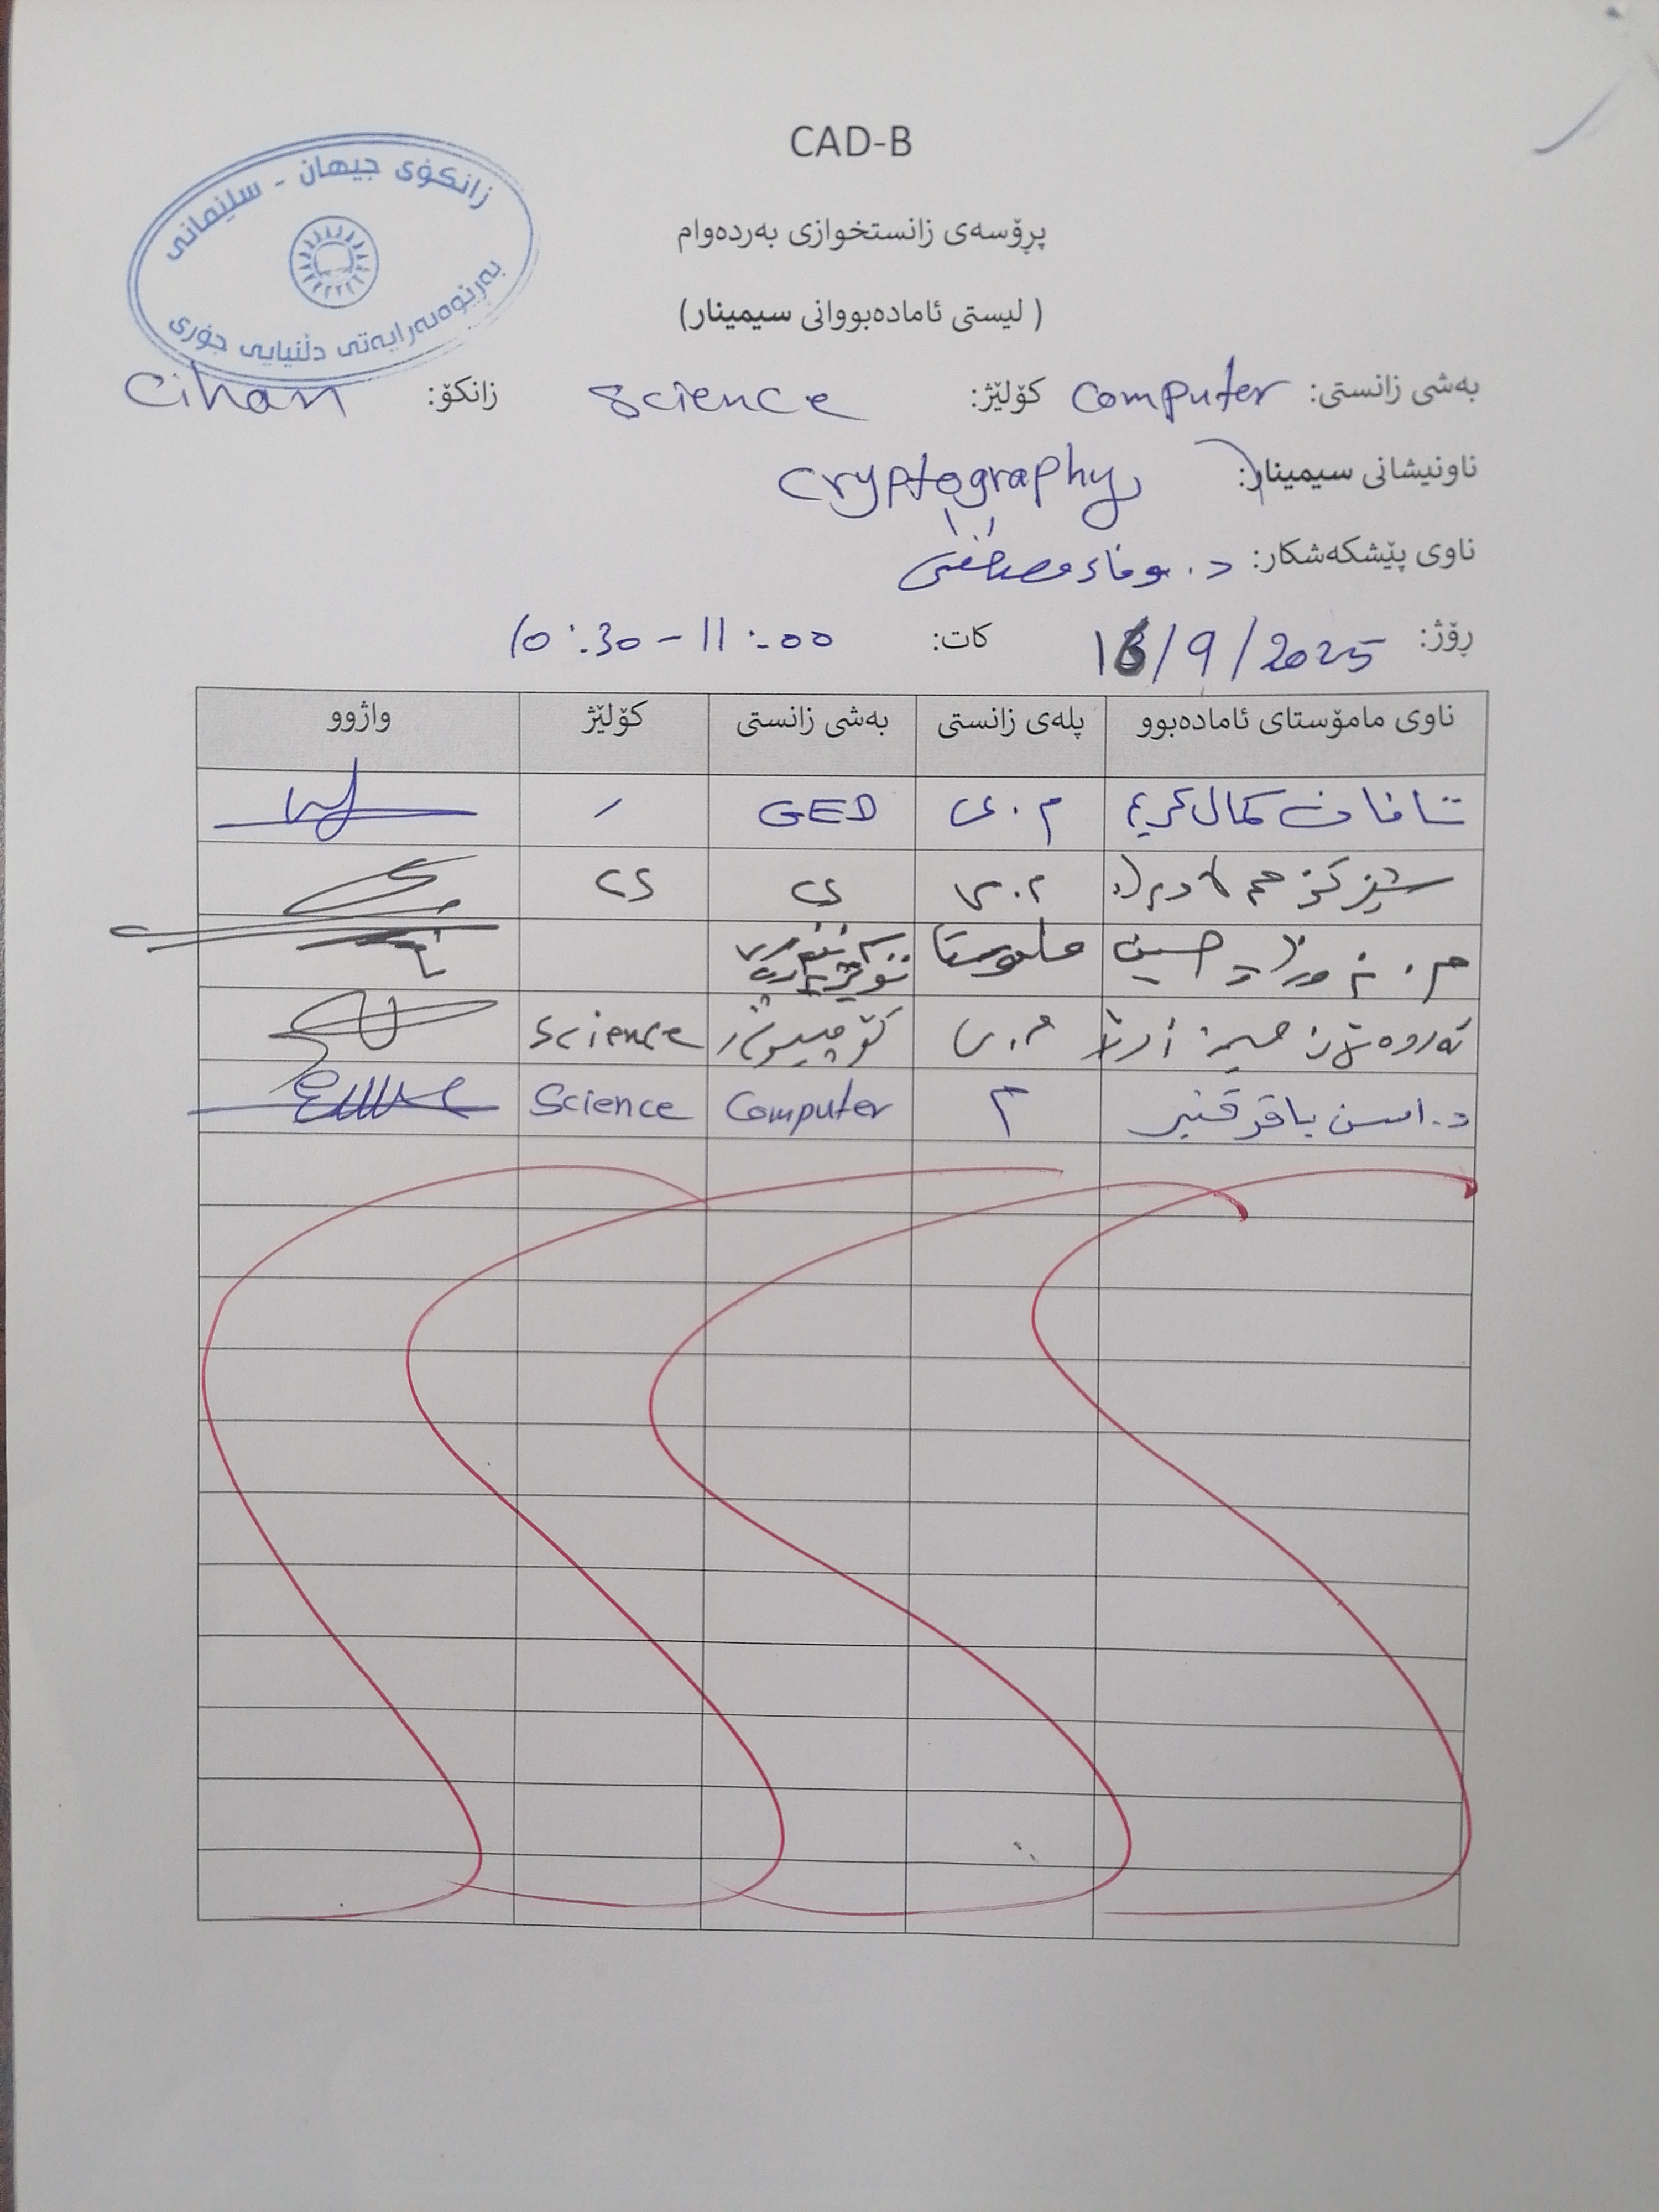 CAD-B
زانکۆی جیهان - سلێمانی
بەڕێوەبەرایەتی دڵنیایی جۆری
پرۆسەی زانستخوازی بەردەوام
( لیستی ئامادەبووانی سیمینار)
بەشی زانستی: Computer کۆلێژ: Science زانکۆ: Cihan
ناونیشانی سیمینار: Cryptography
ناوی پێشکەشکار: د. وفاء مصطفى
ڕۆژ: 16/9/2025 کات: 10:30 - 11:00
ناوی مامۆستای ئامادەبوو پلەی زانستی بەشی زانستی کۆلێژ واژوو
کمال کریم م.ی GED
م.ی CS CS
حسین مامۆستا
م.ی کۆمپیوتەر Science
د. باقر قنبر م Computer Science